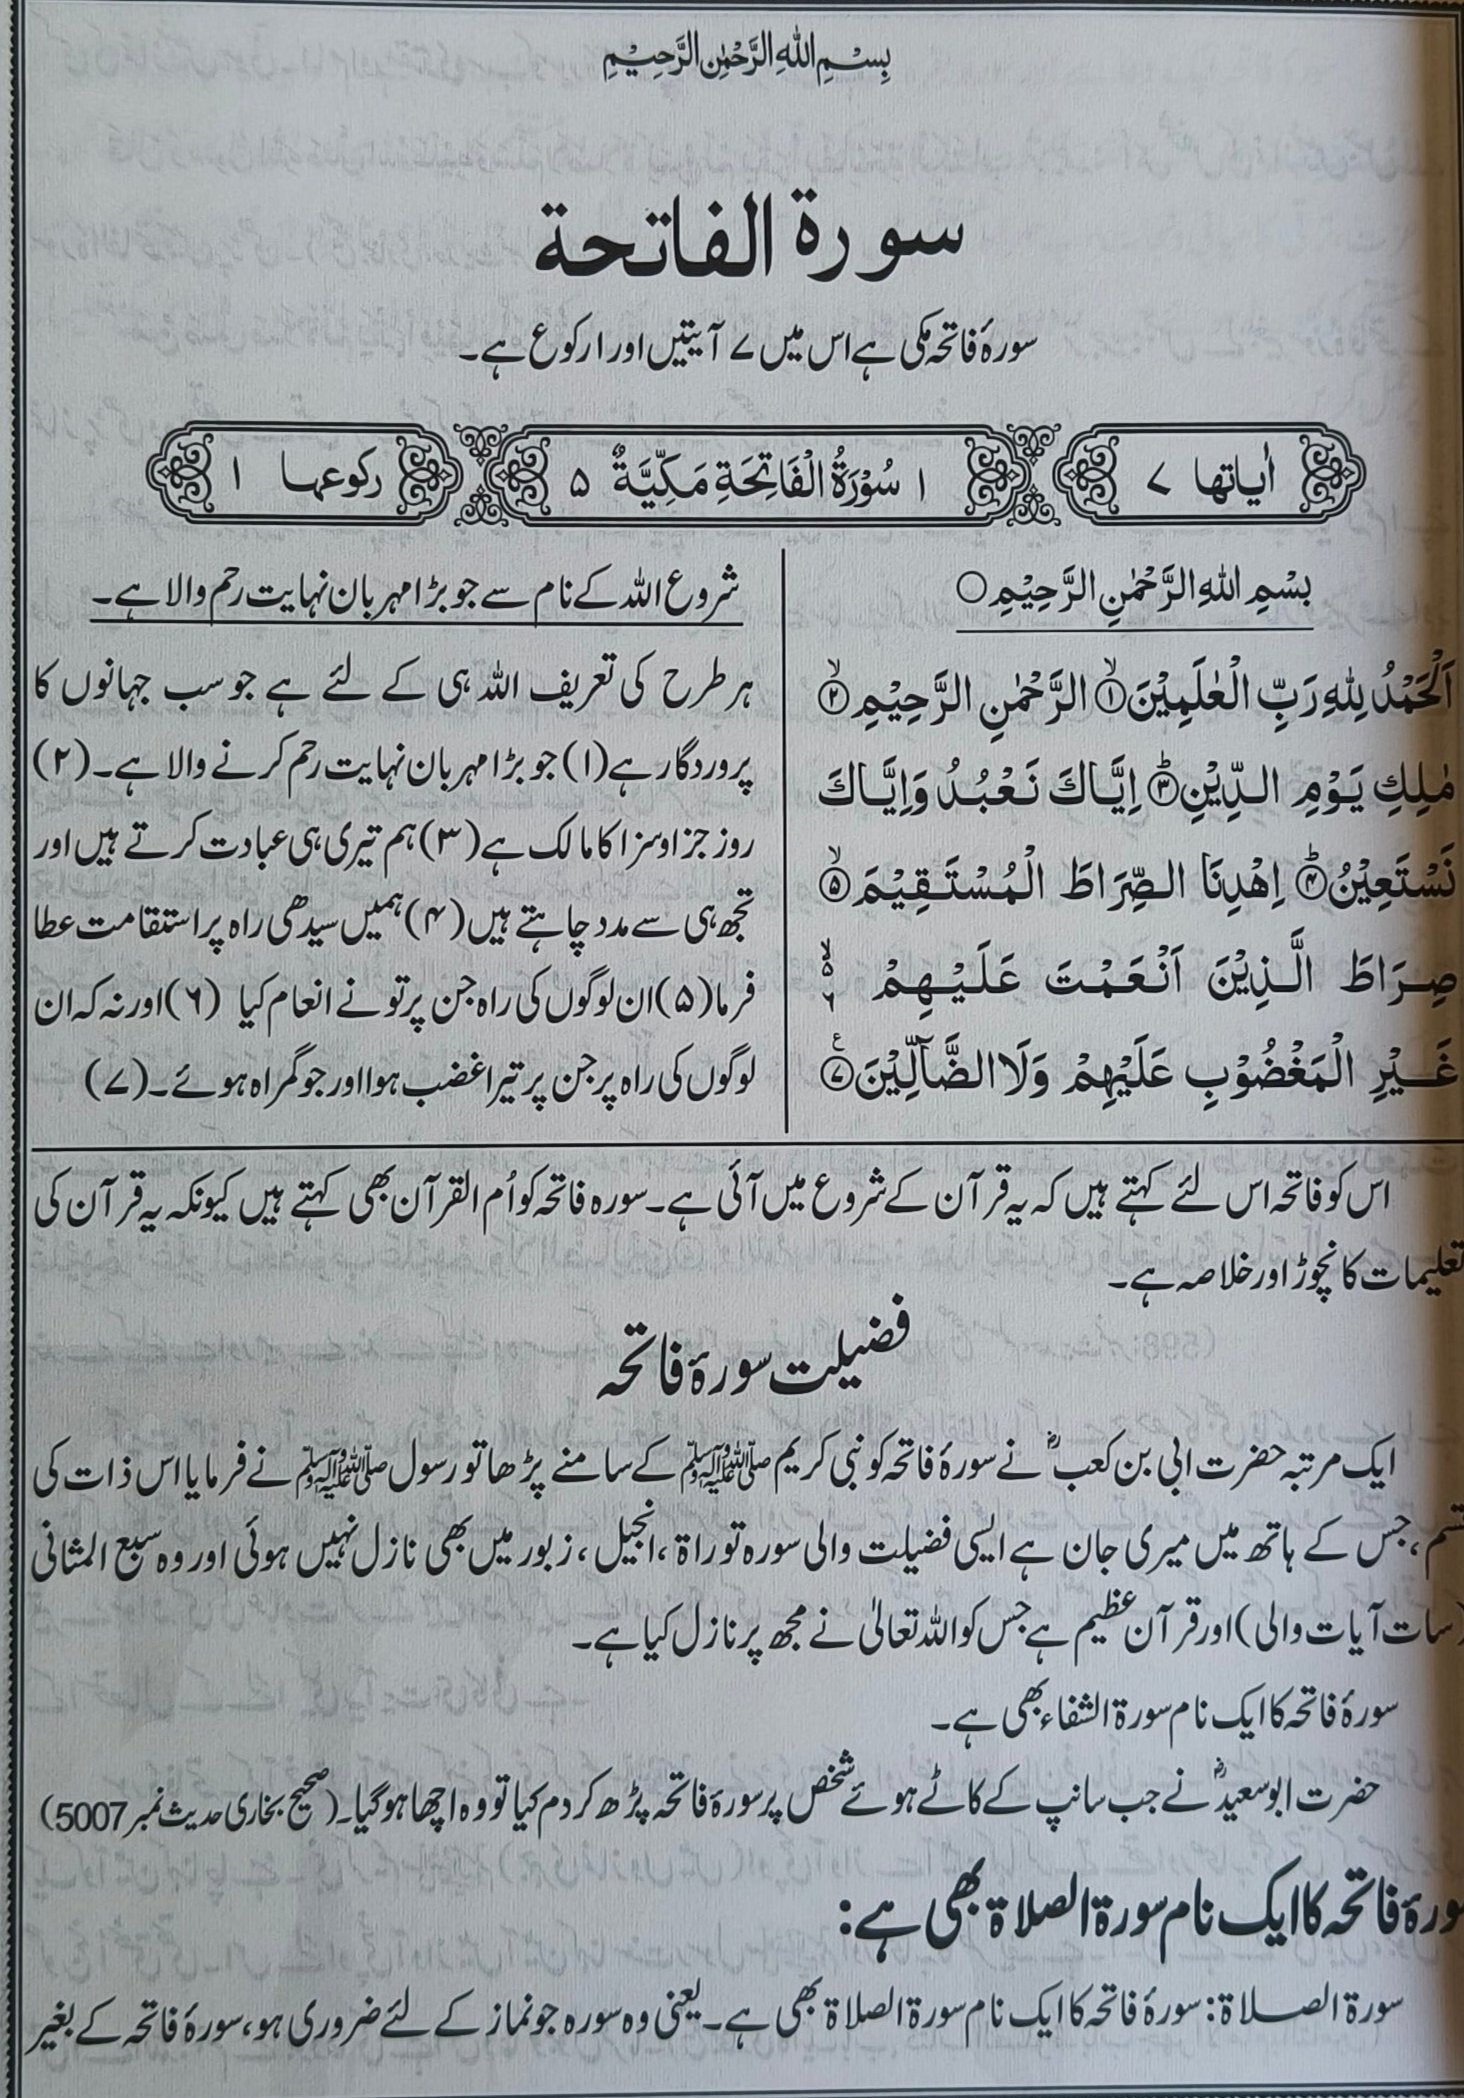 بِسْمِ اللهِ الرَّحْمٰنِ الرَّحِيْمِ
سورة الفاتحة
سورۂ فاتحہ مکی ہے اس میں ۷ آیتیں اور ۱ رکوع ہے۔
اٰیاتها ۷
۱ سُوْرَةُ الْفَاتِحَةِ مَكِّيَّةٌ ۵
رکوعها ۱
بِسْمِ اللهِ الرَّحْمٰنِ الرَّحِيْمِ○
اَلْحَمْدُ لِلّٰهِ رَبِّ الْعٰلَمِيْنَ ۙ﴿۱﴾ الرَّحْمٰنِ الرَّحِيْمِ ۙ﴿۲﴾
مٰلِكِ يَوْمِ الدِّيْنِ ؕ﴿۳﴾ اِيَّاكَ نَعْبُدُ وَاِيَّاكَ
نَسْتَعِيْنُ ؕ﴿۴﴾ اِهْدِنَا الصِّرَاطَ الْمُسْتَقِيْمَ ۙ﴿۵﴾
صِرَاطَ الَّذِيْنَ اَنْعَمْتَ عَلَيْهِمْ ۙ۵ ۶
غَيْرِ الْمَغْضُوْبِ عَلَيْهِمْ وَلَا الضَّآلِّيْنَ ﴿۷﴾ ع
شروع اللہ کے نام سے جو بڑا مہربان نہایت رحم والا ہے۔
ہر طرح کی تعریف اللہ ہی کے لئے ہے جو سب جہانوں کا
پروردگار ہے (۱) جو بڑا مہربان نہایت رحم کرنے والا ہے۔ (۲)
روز جزا و سزا کا مالک ہے (۳) ہم تیری ہی عبادت کرتے ہیں اور
تجھ ہی سے مدد چاہتے ہیں (۴) ہمیں سیدھی راہ پر استقامت عطا
فرما (۵) ان لوگوں کی راہ جن پر تو نے انعام کیا (۶) اور نہ کہ ان
لوگوں کی راہ پر جن پر تیرا غضب ہوا اور جو گمراہ ہوئے۔ (۷)
اس کو فاتحہ اس لئے کہتے ہیں کہ یہ قرآن کے شروع میں آئی ہے۔ سورہ فاتحہ کو اُم القرآن بھی کہتے ہیں کیونکہ یہ قرآن کی
تعلیمات کا نچوڑ اور خلاصہ ہے۔
فضیلت سورۂ فاتحہ
ایک مرتبہ حضرت ابی بن کعبؓ نے سورۂ فاتحہ کو نبی کریم ﷺ کے سامنے پڑھا تو رسول ﷺ نے فرمایا اس ذات کی
قسم، جس کے ہاتھ میں میری جان ہے ایسی فضیلت والی سورہ توراۃ، انجیل، زبور میں بھی نازل نہیں ہوئی اور وہ سبع المثانی
(سات آیات والی) اور قرآن عظیم ہے جس کو اللہ تعالیٰ نے مجھ پر نازل کیا ہے۔
سورۂ فاتحہ کا ایک نام سورۃ الشفاء بھی ہے۔
حضرت ابو سعیدؓ نے جب سانپ کے کاٹے ہوئے شخص پر سورۂ فاتحہ پڑھ کر دم کیا تو وہ اچھا ہو گیا۔ (صحیح بخاری حدیث نمبر 5007)
سورۂ فاتحہ کا ایک نام سورۃ الصلاۃ بھی ہے:
سورۃ الصلاۃ: سورۂ فاتحہ کا ایک نام سورۃ الصلاۃ بھی ہے۔ یعنی وہ سورہ جو نماز کے لئے ضروری ہو، سورۂ فاتحہ کے بغیر